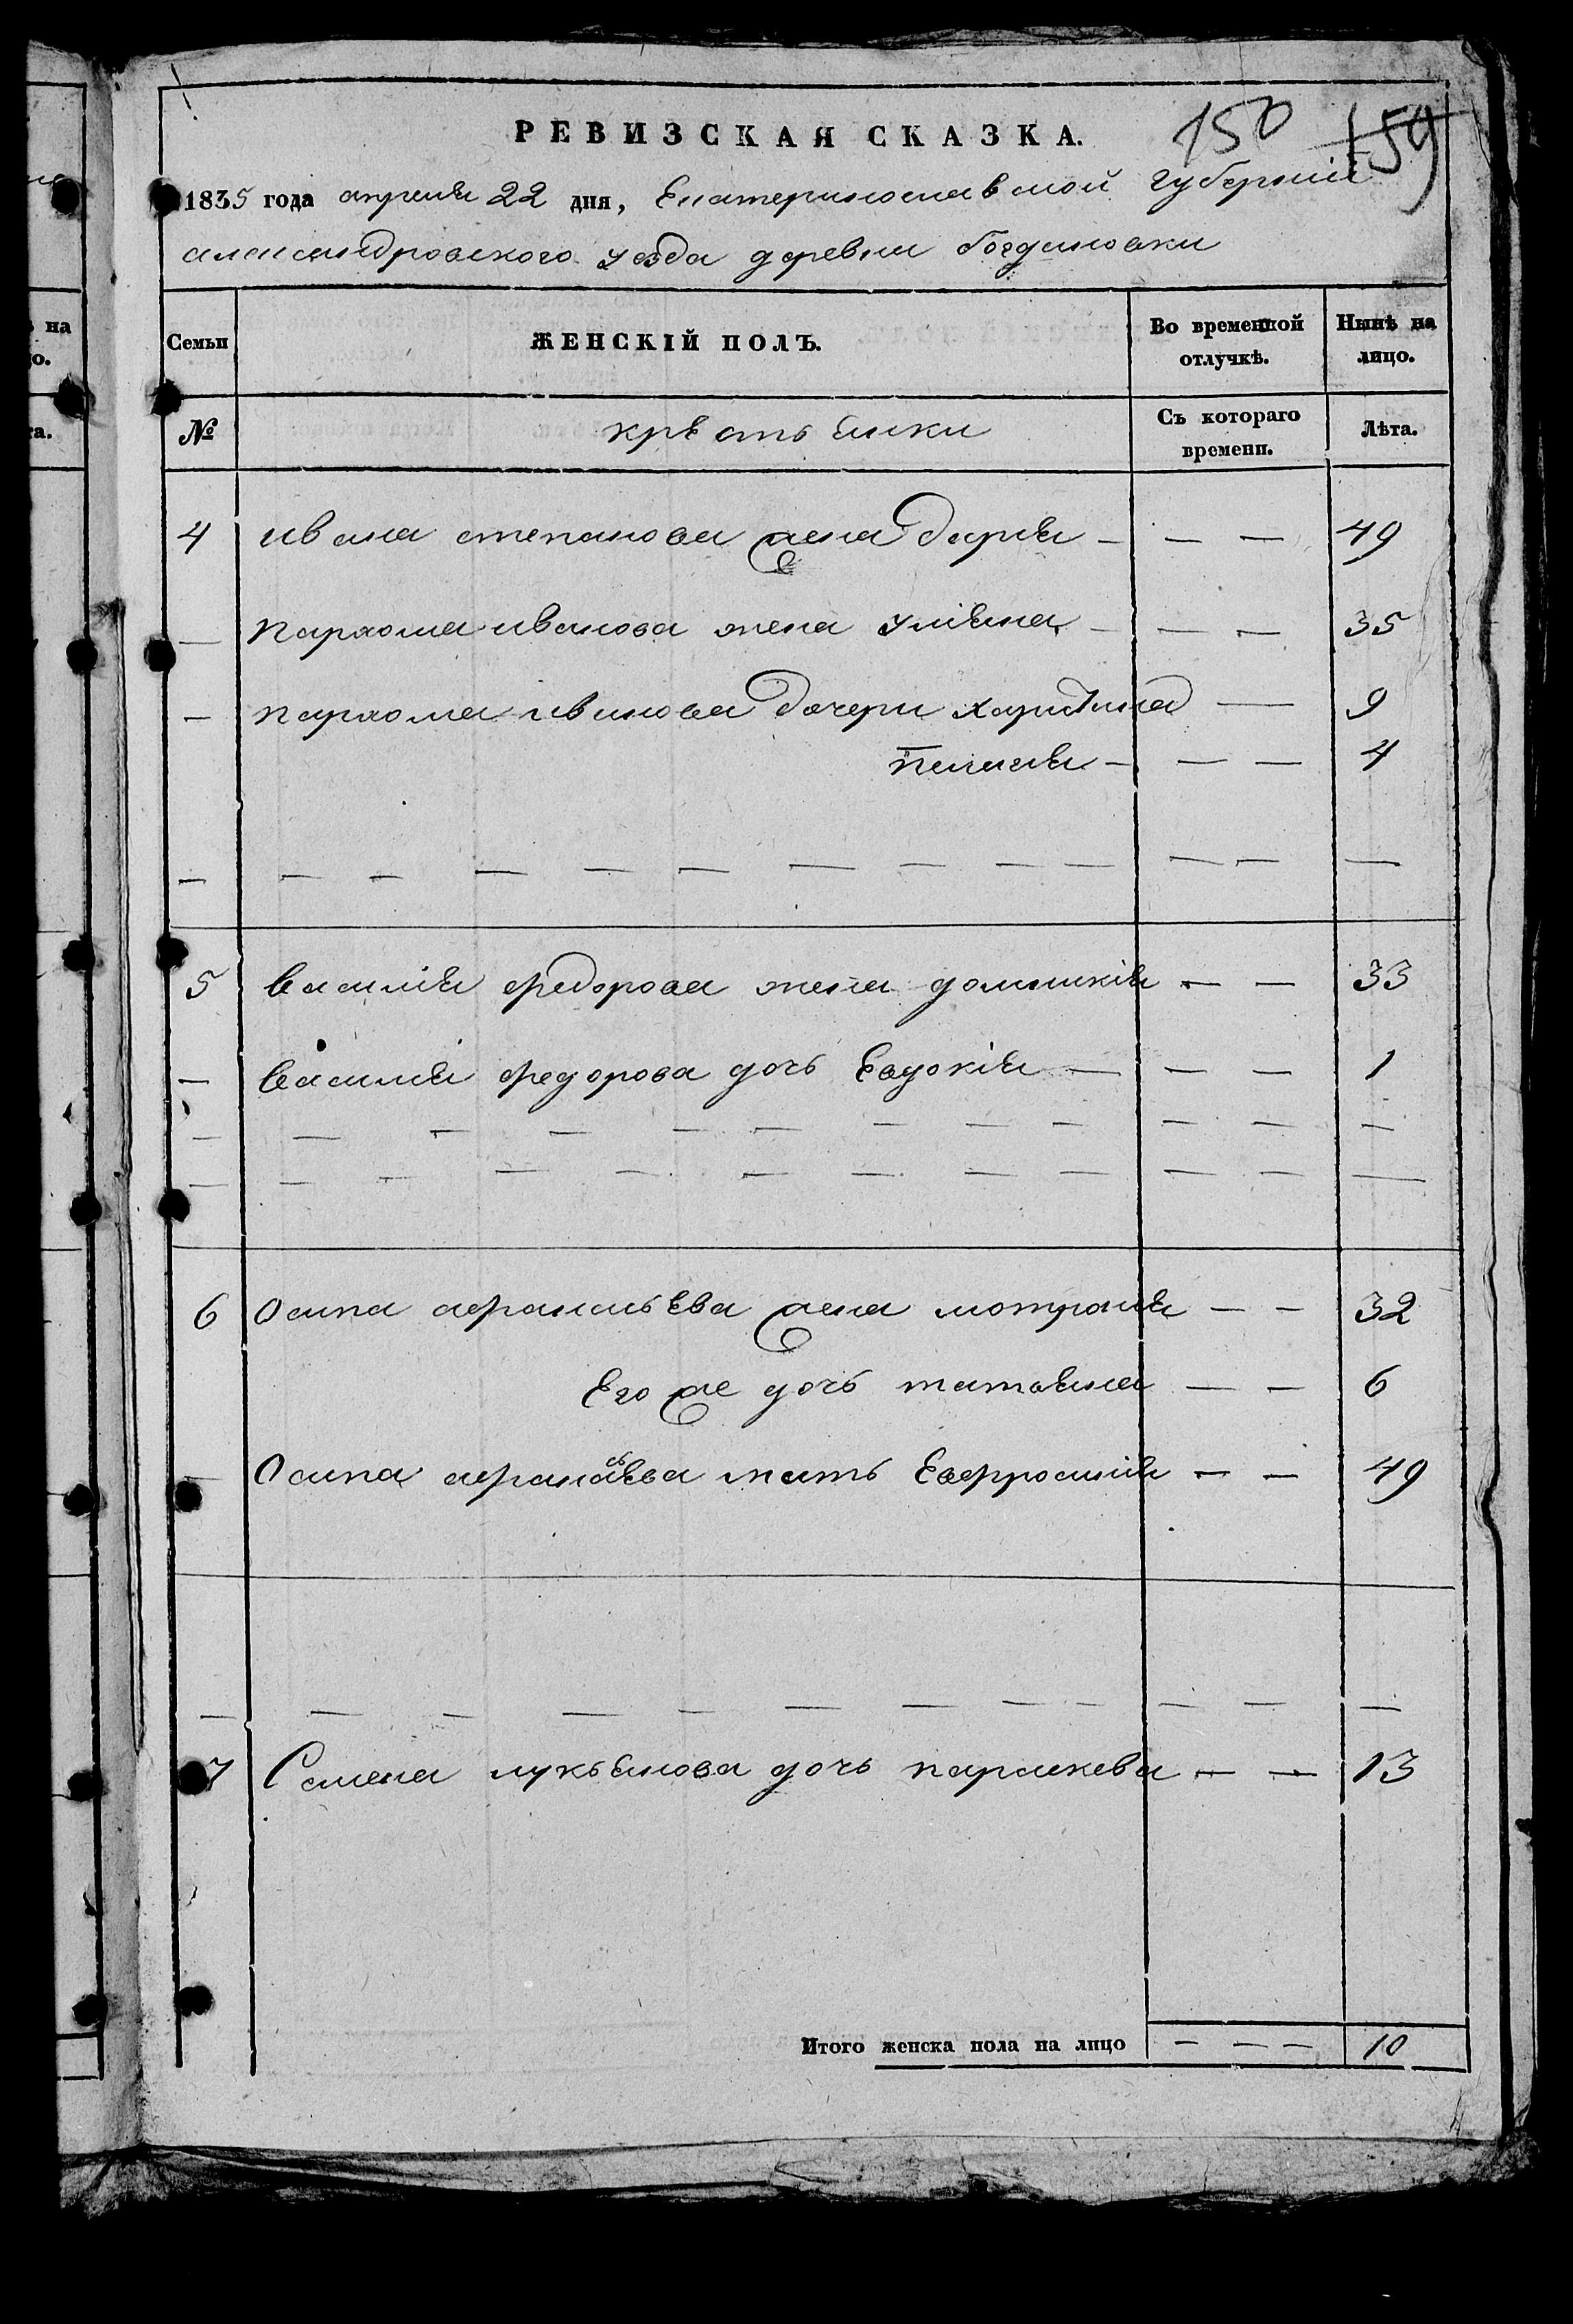 150 159
РЕВИЗСКАЯ СКАЗКА.
1835 года апреля 22 дня, Екатеринославской губернии
александровского уезда деревни богдановки
Семьи ЖЕНСКІЙ ПОЛЪ. Во временной отлучкѣ. Нынѣ на лицо.
№ крѣстьянки Съ котораго времени. Лѣта.
4 ивана степанова жена дарья — — — 49
— пархома иванова жена ульяна — — — 35
— пархома иванова дочери харитина — 9
пелагея — — — 4
5 василія федорова жена домникія — — 33
— василія федорова дочь Евдокія — — — 1
6 Осипа афанасьева жена мотрона — — 32
Его же дочь татьяна — — 6
— Осипа афанасьева мать Евфросинія — — 49
7 Семена лукьянова дочь параскева — — 13
Итого женска пола на лицо — — — 10
на
о.
та.